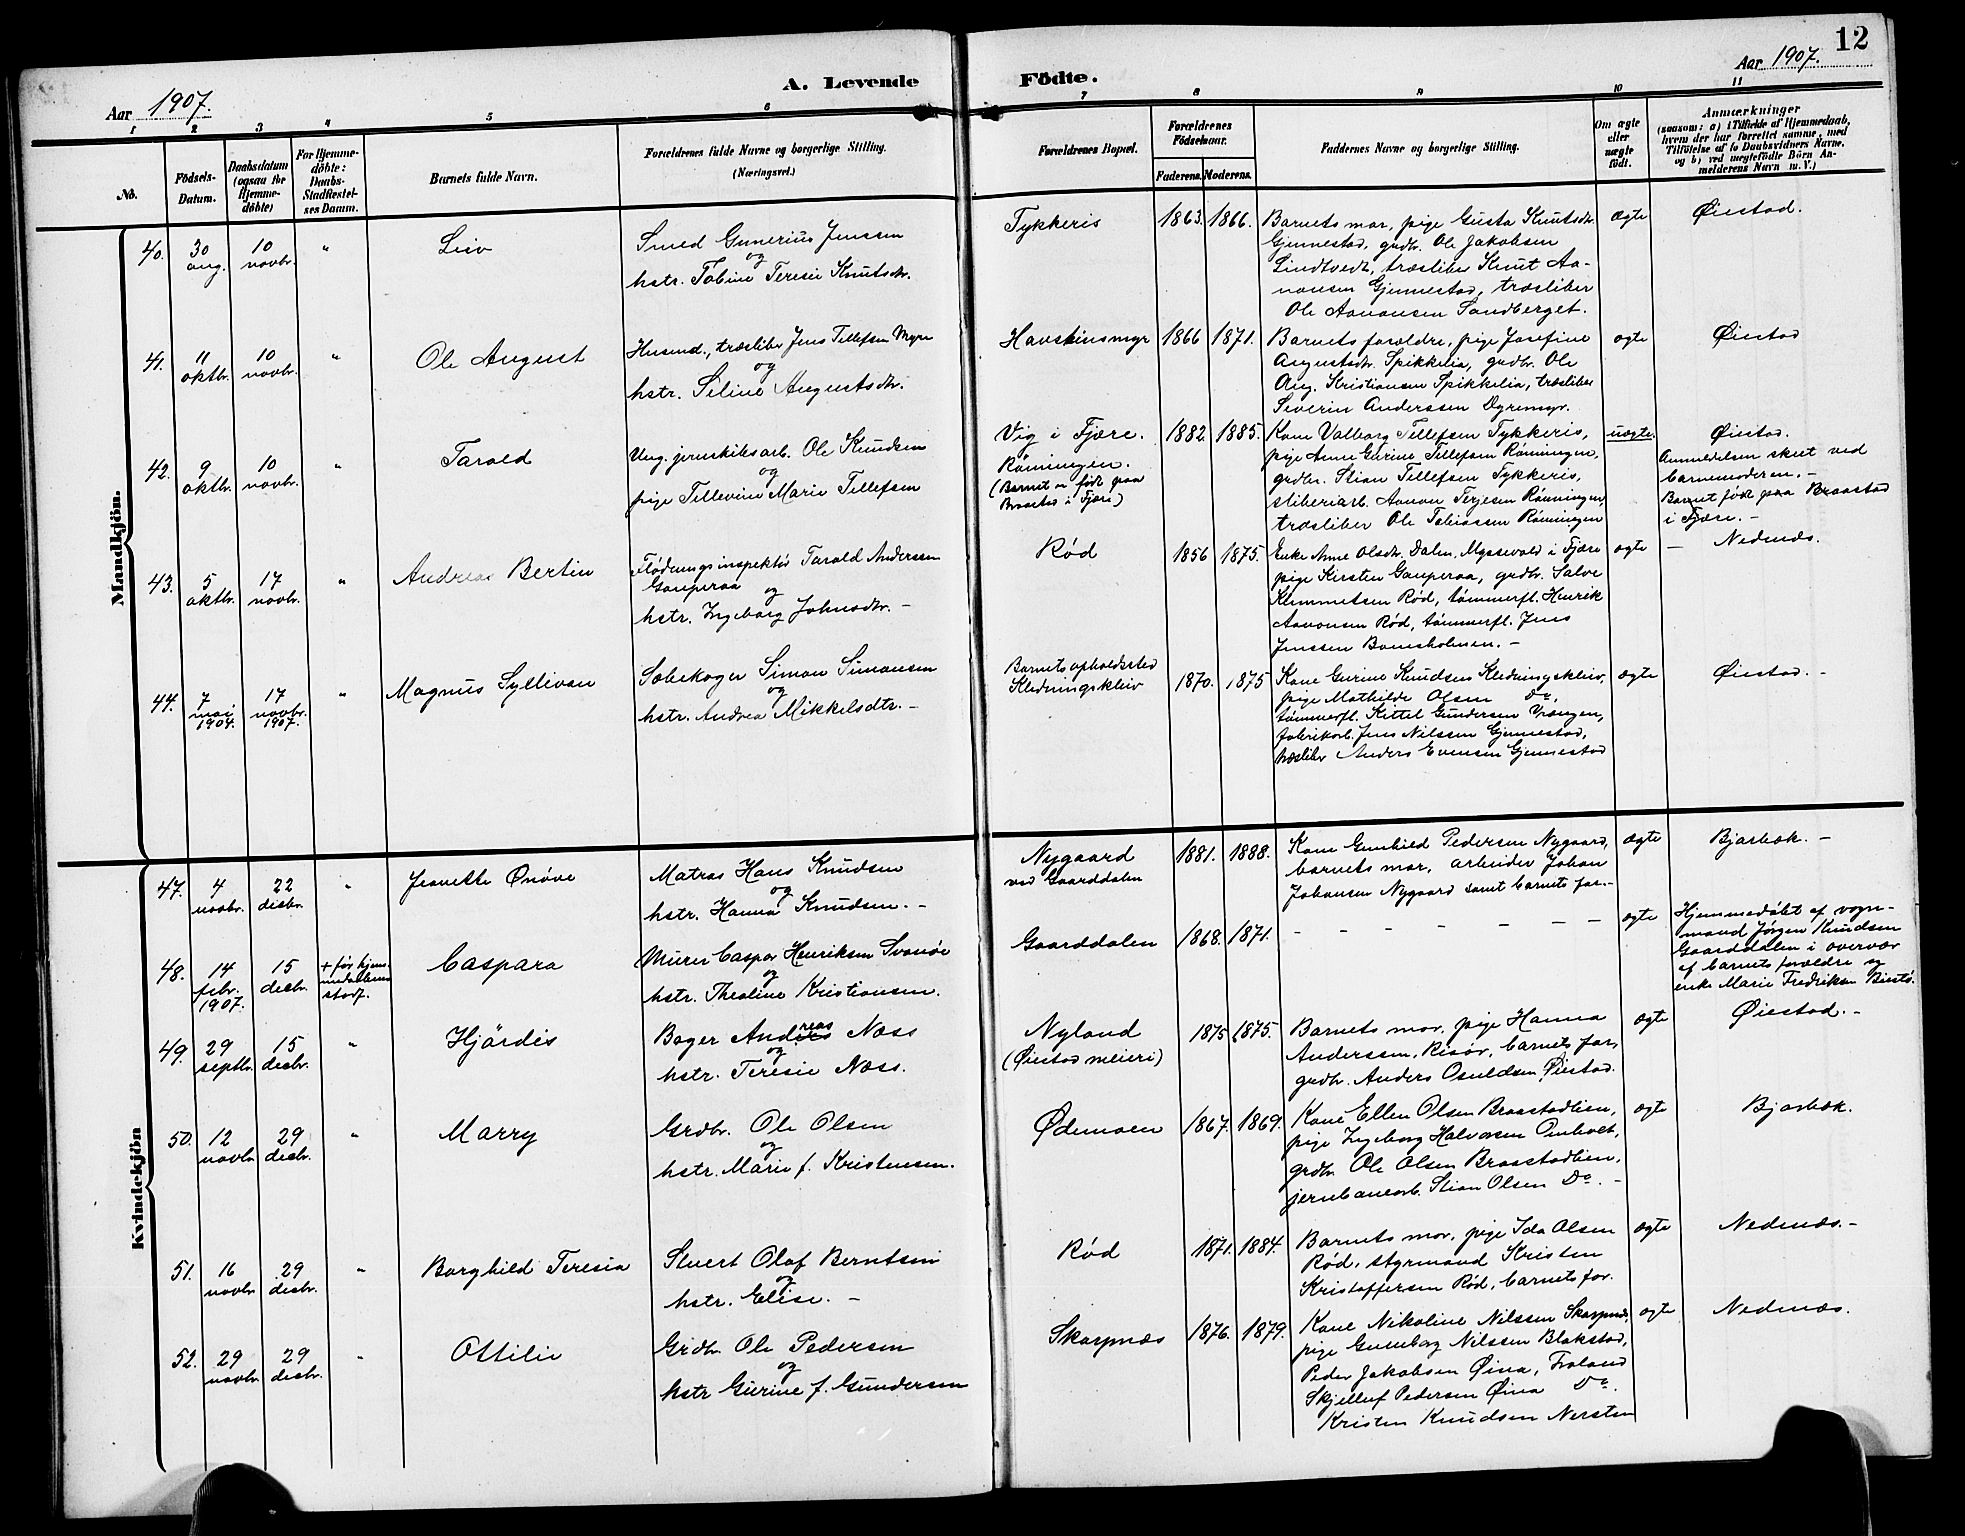 12
A. Levende Födte.
Aar 1907.
Aar 1907.
1 2 3 4 5 6 7 8 9 10 11
No.
Födsels-
Datum.
Daabsdatum
(ogsaa for
Hjemme-
döbte)
For Hjemme-
döbte:
Daabs-
Stadfæstel-
ses Datum.
Barnets fulde Navn.
Forældrenes fulde Navne og borgerlige Stilling.
(Næringsvei.)
Forældrenes Bopæl.
Forældrenes
Fødselsaar.
Faderens. Moderens.
Faddernes Navne og borgerlige Stilling.
Om ægte
eller
uægte
födt.
Anmærkninger
(saasom: a) i Tilfælde af Hjemmedaab,
hvem der har forrettet samme, med
Tilföielse af to Daabsvidners Navne.
og b) ved uægtefödte Börn An-
melderens Navn m. V.)
Mandkjön.
40. 30 aug. 10 novbr. "
Liv
Smed Gunerius Jenssen
og
hstr. Tobine Teresie Knutsdtr.
Tykkeris 1863. 1866.
Barnets mor, pige Gusta Knutsdtr.
Gjennestad, grdbr. Ole Jakobsen
Lindtvedt, træsliber Knut Aa-
nonsen Gjennestad, træsliber
Ole Aanonsen Sandberget.
ægte Øiestad.
41. 11 oktbr. 10 novbr. "
Ole August
Husmd., træsliber Jens Tellefsen Myre
og
hstr. Seline Augustsdtr.
Havskinsmyr 1866 1871.
Barnets forældre, pige Josefine
Augustsdtr. Spikkelia, grdbr. Ole
Aug. Kristiansen Spikkelia, træsliber
Severin Anderssen Dyremyr.
ægte Øiestad
42. 9 oktbr. 10 novbr. "
Tarald
Ung. jernskibsarb. Ole Knudsen
og
pige Tellevine Marie Tellefsen
Vig i Fjære.
Rønningen.
(Barnet er født paa
Braastad i Fjære)
1882. 1885.
Kone Valborg Tellefsen Tykkeris,
pige Anne Gurine Tellefsen Rønningen,
grdbr. Stian Tellefsen Tykkeris,
sliberiarb. Aanon Terjesen Rønningen,
træsliber Ole Tobiassen Rønningen
uægte. Øiestad.
Anmeldelsen skeet ved
barnemoderen. -
Barnet født paa Braastad
i Fjære. -
43. 5 oktbr. 17 novbr. "
Andreas Bertin
Flødningsinspektør Tarald Anderssen
Gauperaa
og
hstr. Ingeborg Johnsdtr. -
Rød 1856 1875.
Enke Anne Olsdtr. Dalen, Myssevold i Fjære
pige Kirsten Gauperaa, grdbr. Salve
Klemmetsen Rød, tømmerfl. Henrik
Aanonsen Rød, tømmerfl. Jens
Jenssen Bomsholmen. -
ægte - Nednæs.
44. 7 mai 1904. 17 novbr. 1907. "
Magnus Syllivan
Sæbekoger Simon Simonsen
og
hstr. Andrea Mikkelsdtr. -
Barnets opholdssted
Kledningskleiv
1870. 1875
Kone Gurine Knudsen Kledningskleiv,
pige Mathilde Olsen Do,
tømmerfl. Kittel Gundersen Vrængen,
fabrikarb. Jens Nilssen Gjennestad,
træsliber Anders Evensen Gjennestad
ægte Øiestad. -
Kvindekjön
47. 4 novbr. 22 decbr. "
Jeanette Ønøve
Matros Hans Knudsen
og
hstr. Hanna Knudsen. -
Nygaard
ved Gaarddalen
1881. 1888.
Kone Gunhild Pedersen Nygaard,
barnets mor, arbeider Johan
Johansen Nygaard samt barnets far. -
ægte Bjorbæk. -
48. 14 febr. 1907. 15 decbr. + før hjem-
medaabens
stadf.
Caspara
Murer Caspar Henriksen Svanøe
og
hstr. Thealine Kristiansen.
Gaarddalen 1868. 1871. - - - - - - - -
ægte
Hjemmedøbt af vogn-
mand Jørgen Knudsen
Gaarddalen i overvær
af barnets forældre og
enke Marie Fredriksen Biestø.
49. 29 septbr. 15 decbr. "
Hjördis
Bager Andreas Næss
og
hstr. Teresie Næss.
Nyland
(Øiestad meieri)
1875 1875.
Barnets mor, pige Hanna
Anderssen, Risør, barnets far,
grdbr. Anders Osuldsen, Øiestad.
ægte Øiestad. -
50. 12 novbr. 29 decbr. "
Marry
Grdbr. Ole Olsen
og
hstr. Marie f. Kristensen.
Ødemoen 1867. 1869.
Kone Ellen Olsen Braastadlien,
pige Ingeborg Halvorsen Omholt,
grdbr. Ole Olsen Braastadlien,
jernbanearb. Stian Olsen Do. -
ægte Bjorbæk.
51. 16 novbr. 29 decbr. "
Borghild Teresia
Stuert Olaf Berntsen
og
hstr. Elise. -
Rød 1871. 1884.
Barnets mor, pige Ida Olsen
Rød, styrmand Kristen
Kristoffersen Rød, barnets far.
ægte Nednæs. -
52. 29 novbr. 29 decbr. "
Ottilie
Grdbr. Ole Pedersen
og
hstr Gurine f. Gundersen
Skarpnæs 1876. 1879.
Kone Nikoline Nilssen Skarpnæs,
pige Gunborg Nilssen Blakstad,
Peder Jakobsen Øina, Froland
Skjelluf Pedersen Øina Do.
Kristen Knudsen Nersten
ægte Nednæs.